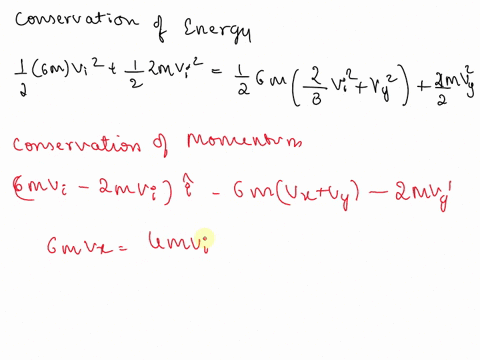 Conservation of Energy
1/2 (6m)Vi² + 1/2 2mVi² = 1/2 6m (2/3 Vi² + Vy²) + 2/2 mVy²
Conservation of Momentum
(6mVi - 2mVi) î - 6m(Vx+Vy) - 2mVy'
6mVx = 4mVi